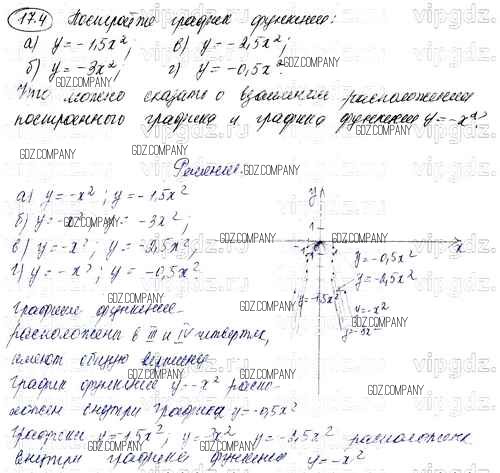 17.4 Постройте график функции:
а) y = -1,5x²; в) y = -2,5x²;
б) y = -3x²; г) y = -0,5x².
Что можно сказать о взаимном расположении
построенного графика и графика функции y = -x²?
Решение.
а) y = -x²; y = -1,5x²
б) y = -x² y = -3x²;
в) y = -x²; y = -2,5x²;
г) y = -x²; y = -0,5x²
y
x
y = -0,5x²
y = -2,5x²
y = -1,5x²
y = -x²
y = -3x²
Графики функций
расположены в III и IV четвертях,
имеют общую вершину
График функции y = -x² распо-
ложен внутри графика y = -0,5x²
Графики y = -1,5x²; y = -3x²; y = -2,5x² расположены
внутри графика функции y = -x²
GDZ.COMPANY
vipgdz.ru